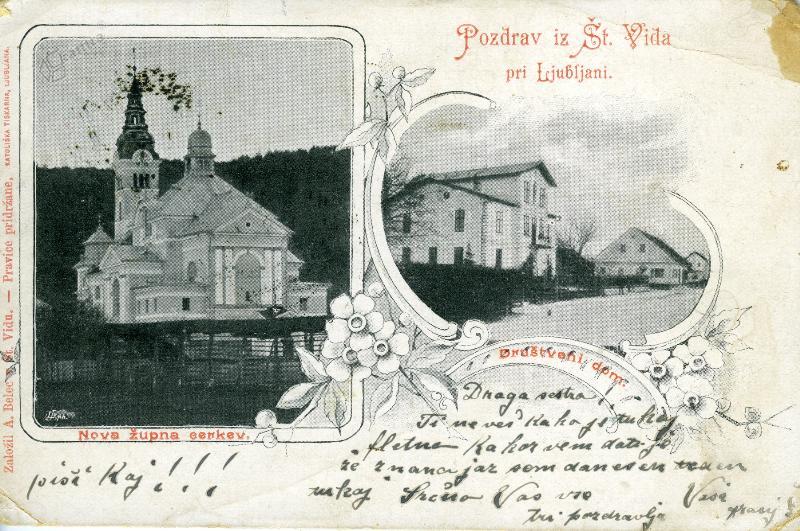 Pozdrav iz Št. Vida
pri Ljubljani.
Založil A. Belec v Št. Vidu. — Pravice pridržane.
KATOLIŠKA TISKARNA, LJUBLJANA.
Nova župna cerkev.
Društveni dom.
Draga sestra,
Ti ne veš kako je tukaj
fletno kakor vem da ti je
že znano jaz sem danes en teden
tukaj Srčno Vas vse
tri pozdravlja
piši kaj!!!